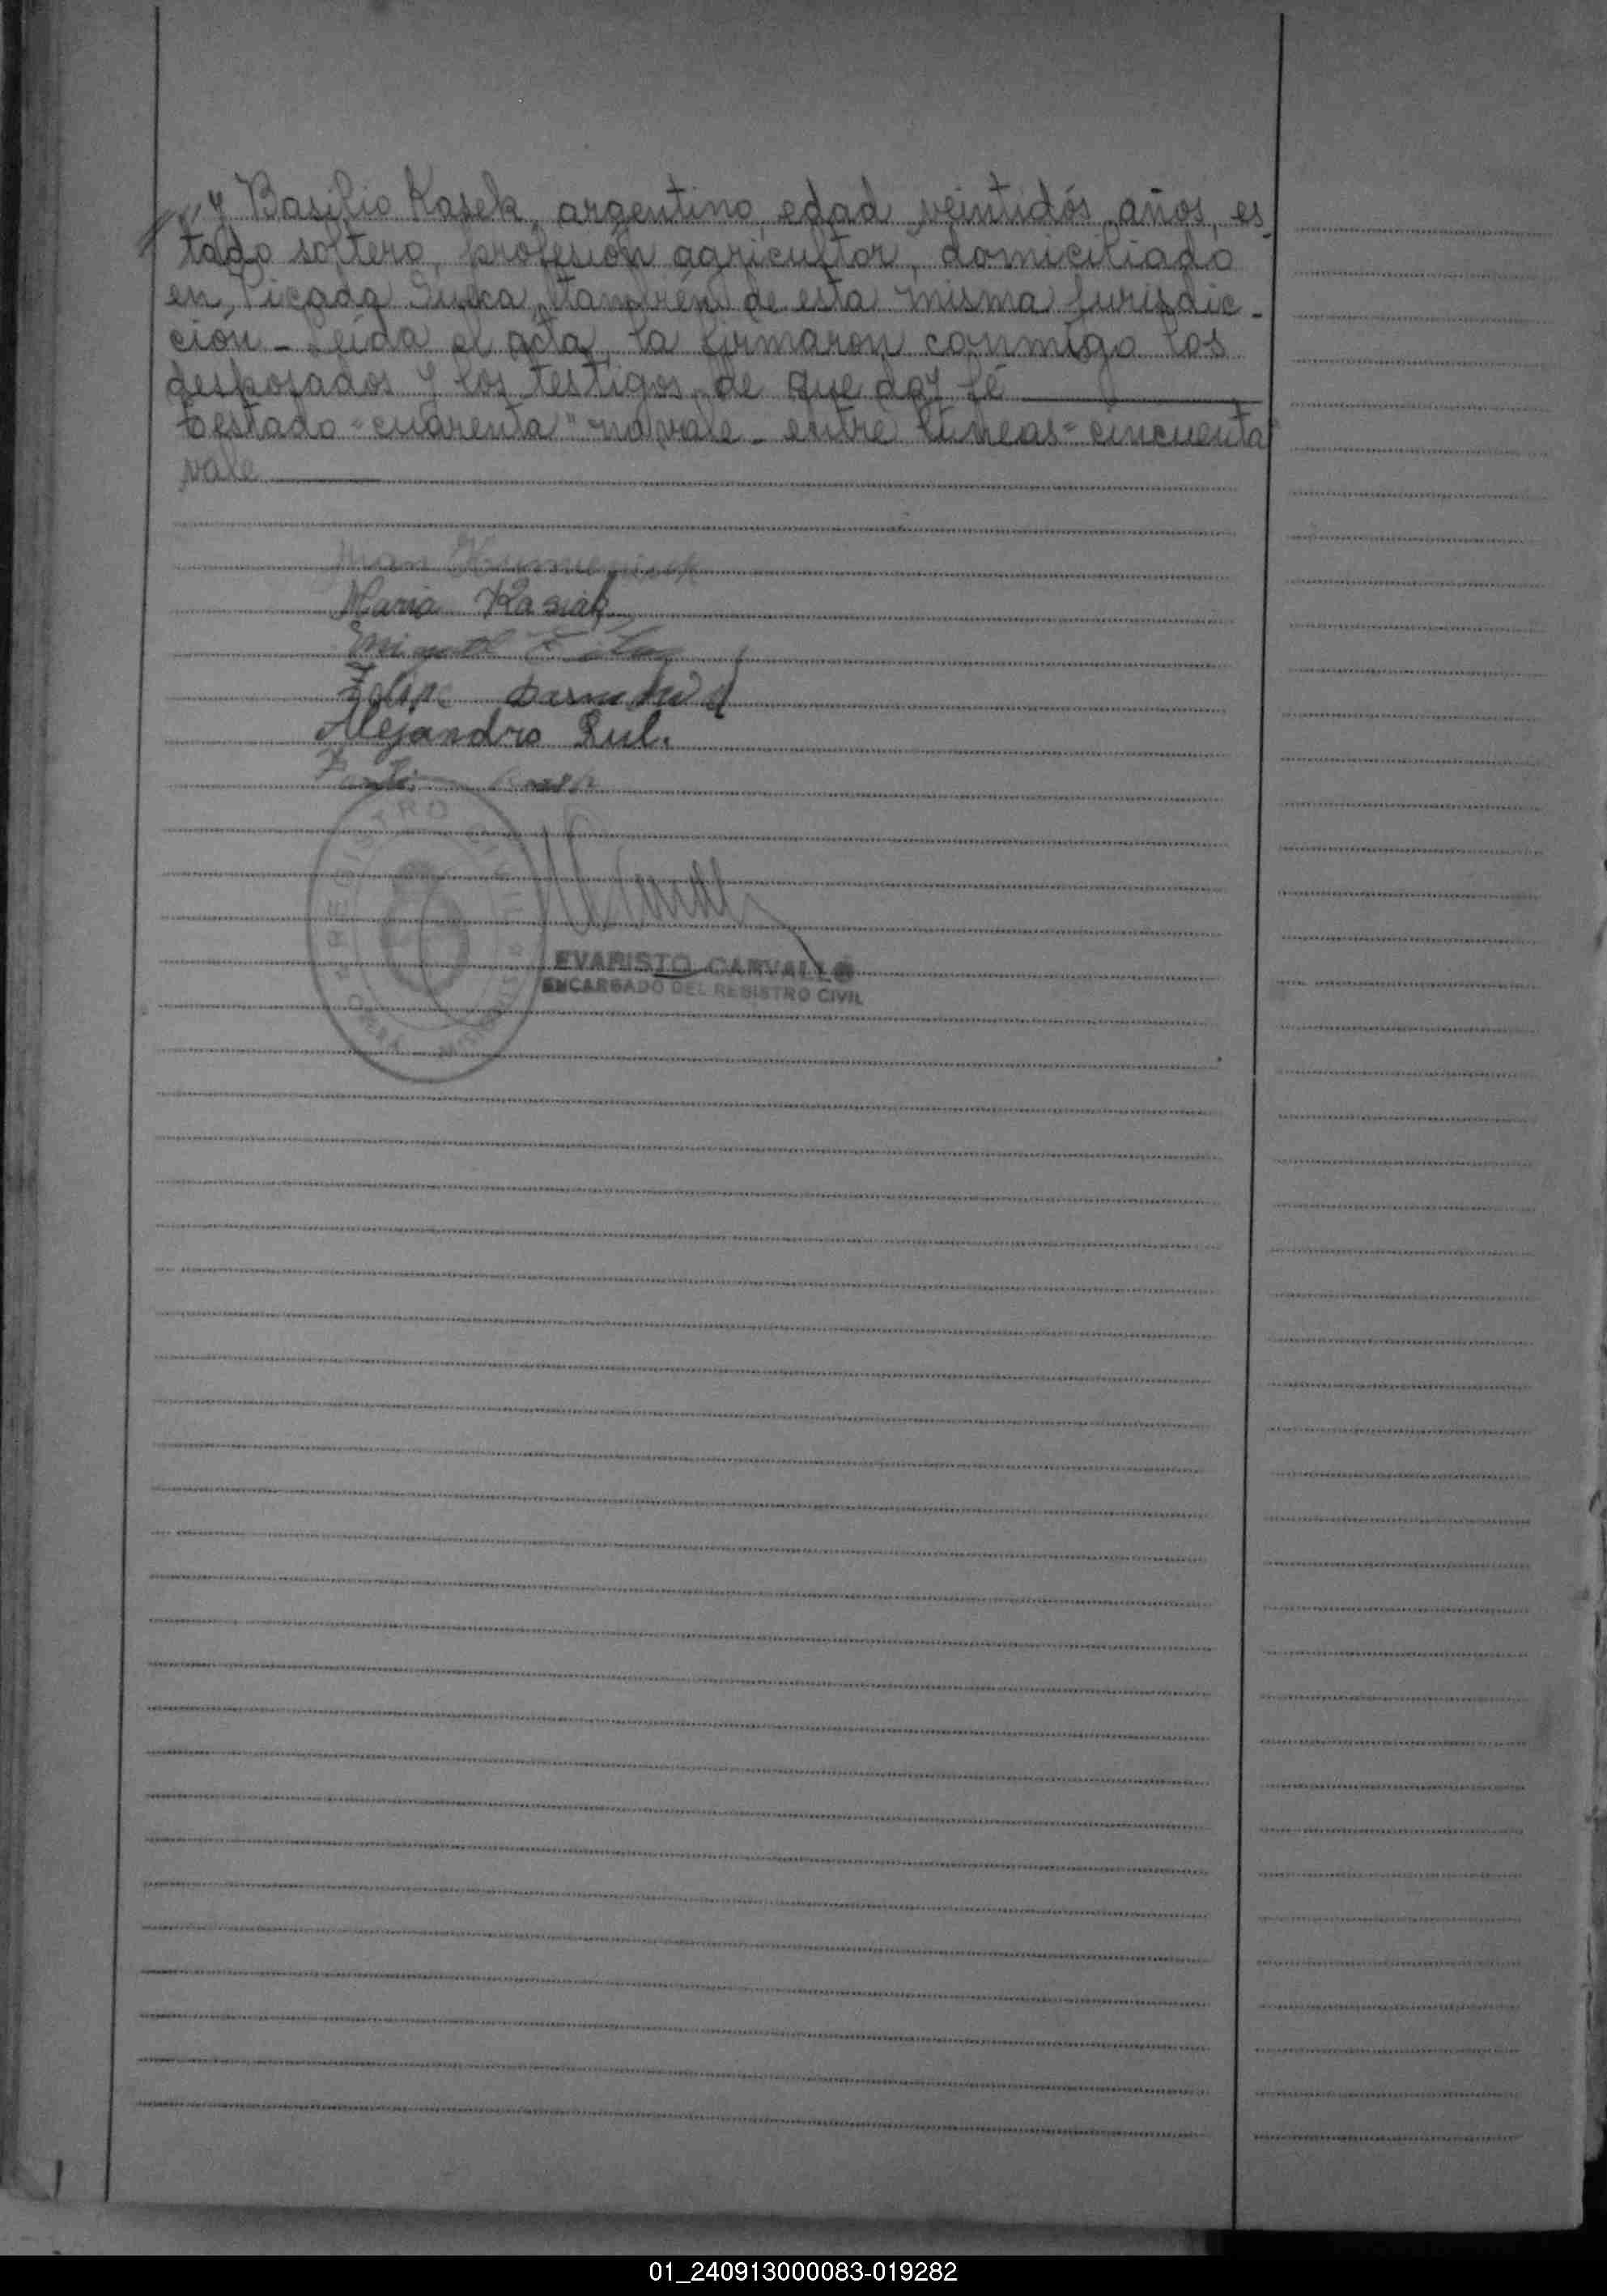 y Basilio Kasek, argentino, edad veintidós años, es
tado soltero, profesión agricultor, domiciliado
en Picada también de esta misma jurisdic-
ción - Leída el acta, la firmaron conmigo los
desposados y los testigos de que doy fé
testado "cuarenta" no vale - entre líneas "cincuenta"
vale
Maria Kasiak
Miguel
Felipe
Alejandro Sul.
REGISTRO CIVIL
EVARISTO CARVALLO
ENCARGADO DEL REGISTRO CIVIL
01_240913000083-019282